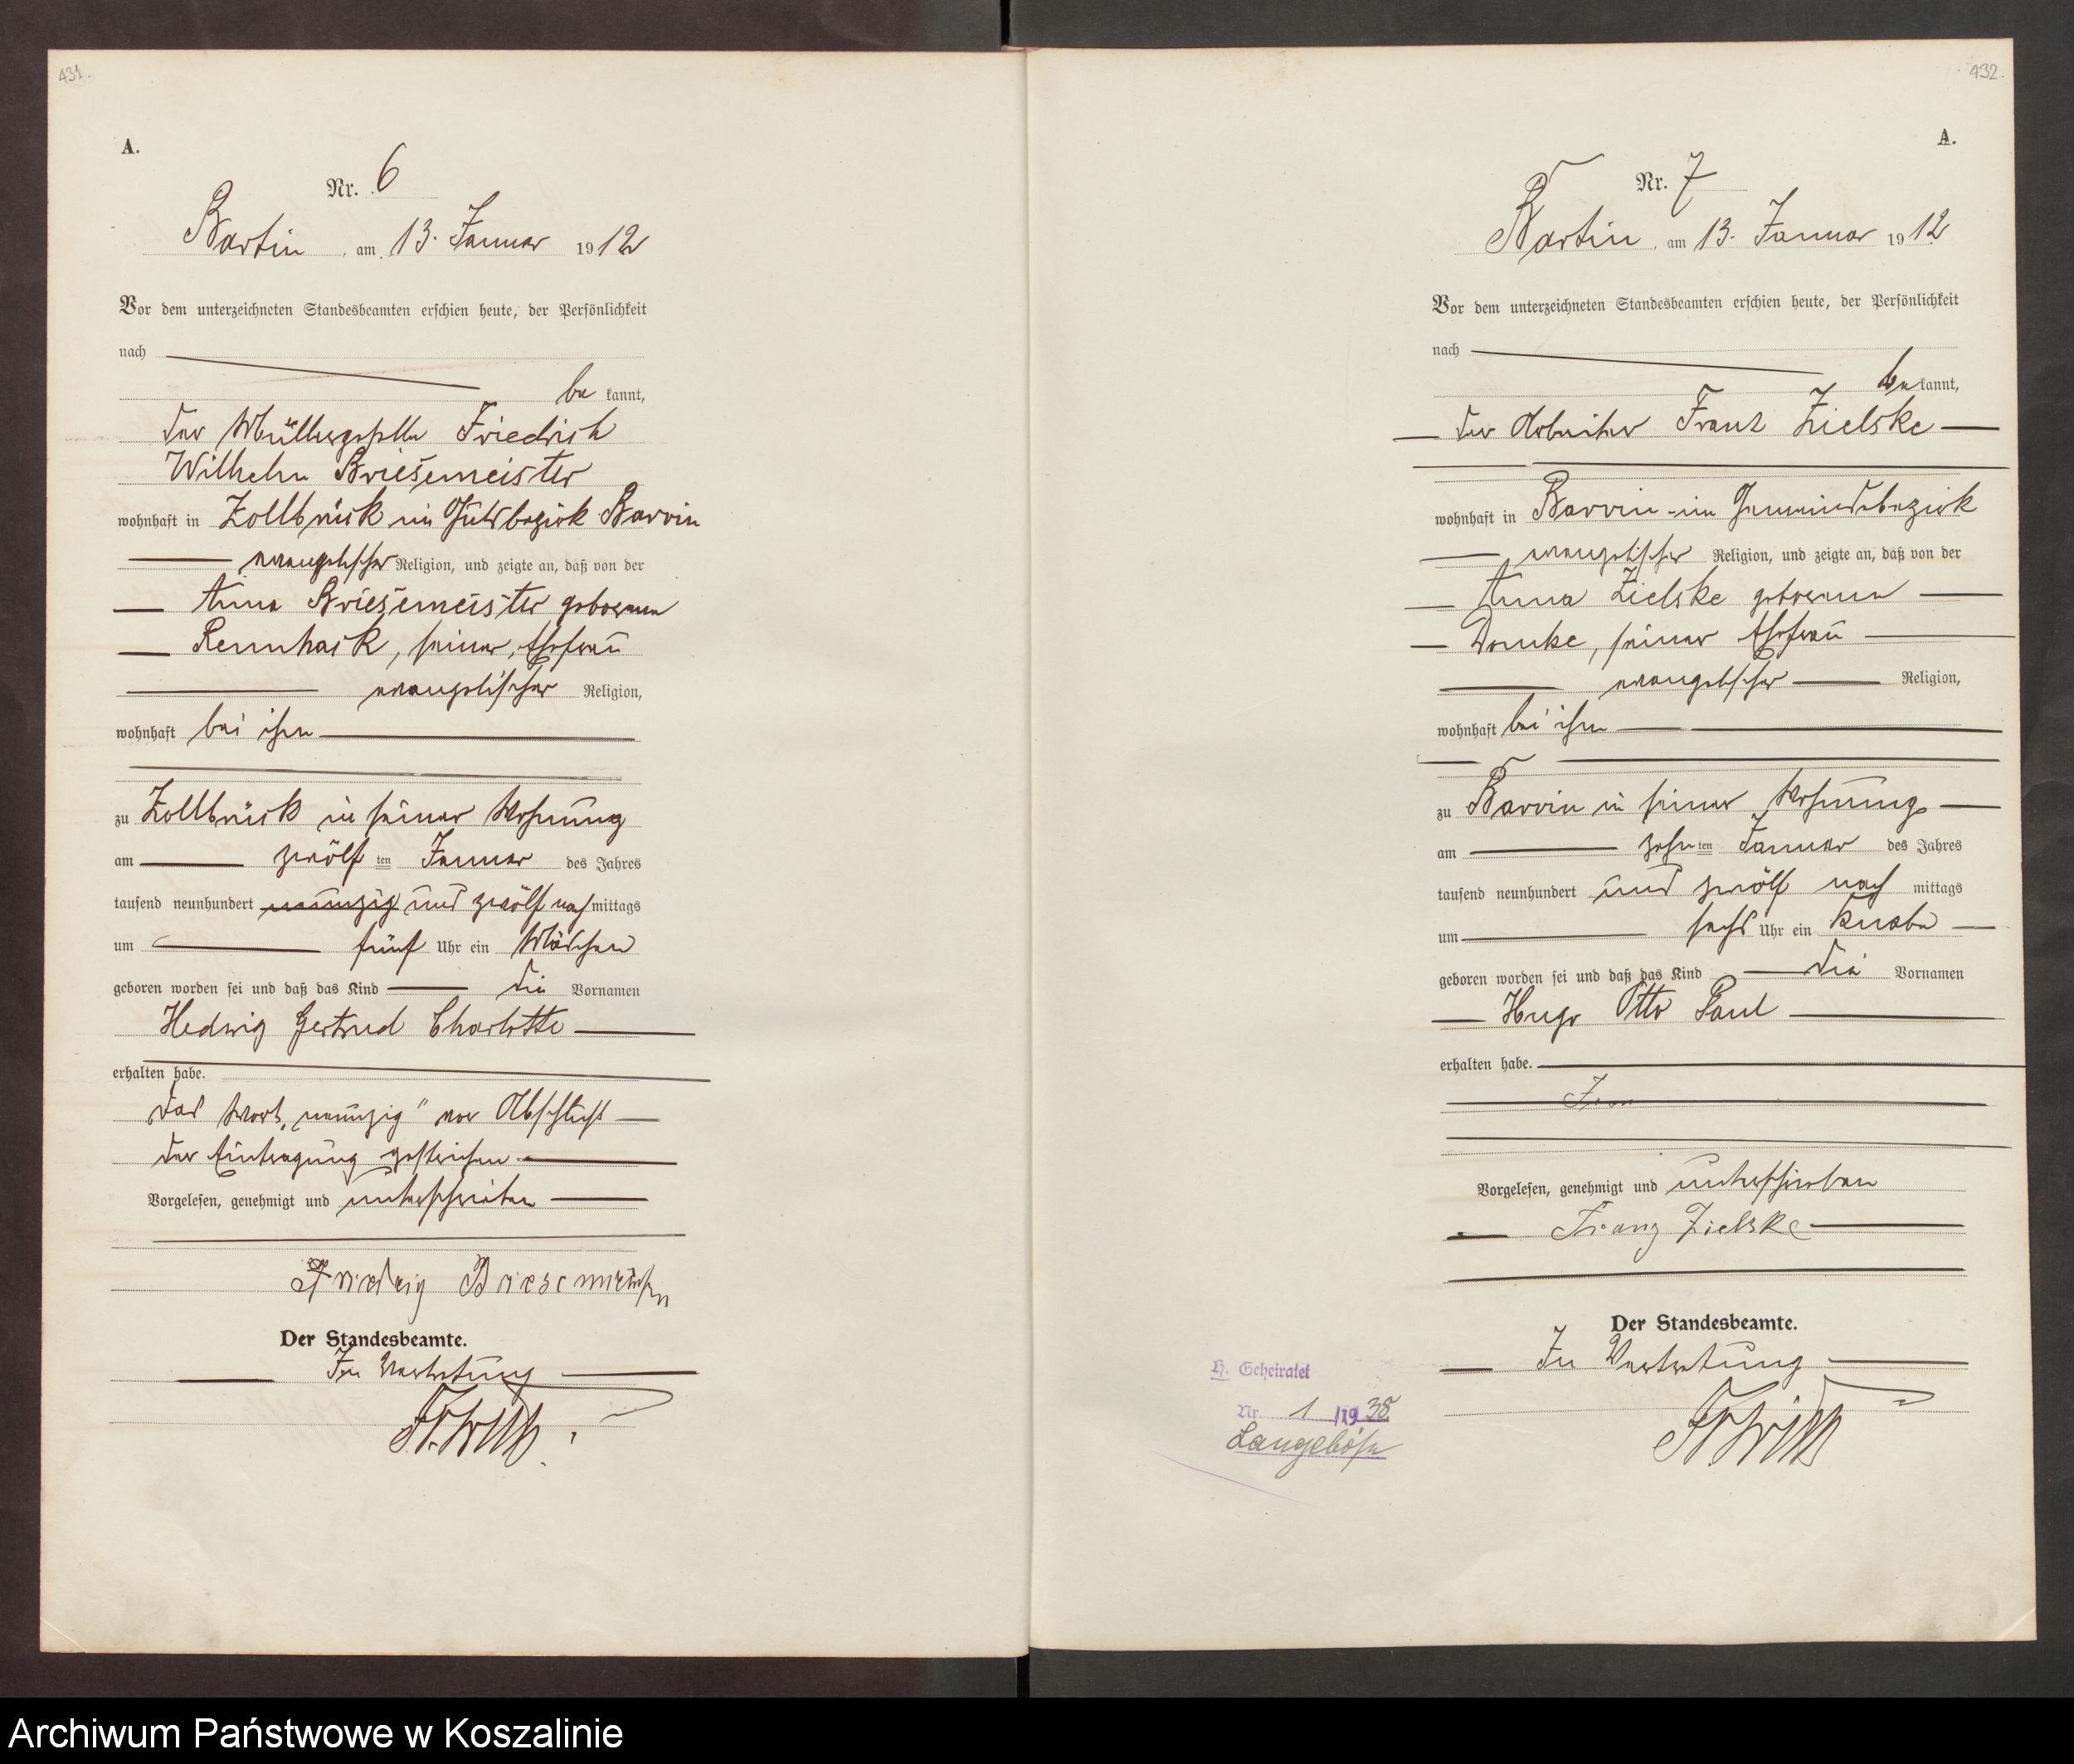 431.
A.
Nr. 6
Bartin, am 13. Januar 1912
Vor dem unterzeichneten Standesbeamten erschien heute, der Persönlichkeit
nach
be kannt,
der Müllergeselle Friedrich
Wilhelm Briesemeister
wohnhaft in Zollbrück im Gutsbezirk Barvin
evangelischer Religion, und zeigte an, daß von der
Anna Briesemeister geborenen
Rennhack, seiner Ehefrau
evangelischer Religion,
wohnhaft bei ihm
zu Zollbrück in seiner Wohnung
am zwölf ten Januar des Jahres
tausend neunhundert neunzig und zwölf nachmittags
um fünf Uhr ein Mädchen
geboren worden sei und daß das Kind die Vornamen
Hedwig Gertrud Charlotte
erhalten habe.
Das Wort „neunzig" vor Abschluß
der Eintragung gestrichen.
Vorgelesen, genehmigt und unterschrieben
Friedrig Briesemeister
Der Standesbeamte.
In Vertretung
432.
A.
Nr. 7
Bartin, am 13. Januar 1912
Vor dem unterzeichneten Standesbeamten erschien heute, der Persönlichkeit
nach
be kannt,
der Arbeiter Franz Zielske
wohnhaft in Barvin im Gemeindebezirk
evangelischer Religion, und zeigte an, daß von der
Anna Zielske geborenen
Domke, seiner Ehefrau
evangelischer Religion,
wohnhaft bei ihm
zu Barvin in seiner Wohnung
am zehn ten Januar des Jahres
tausend neunhundert und zwölf nach mittags
um sechs Uhr ein Knabe
geboren worden sei und daß das Kind die Vornamen
Hugo Otto Paul
erhalten habe.
Vorgelesen, genehmigt und unterschrieben
Franz Zielske
Der Standesbeamte.
In Vertretung
H. Geheiratet
Nr. 1 /1938
Langeböse
Archiwum Państwowe w Koszalinie